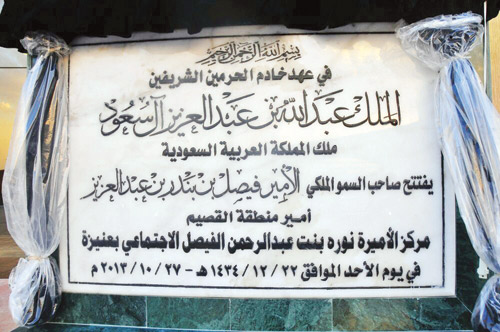 بسم الله الرحمن الرحيم
في عهد خادم الحرمين الشريفين
الملك عبد الله بن عبد العزيز آل سعود
ملك المملكة العربية السعودية
يفتتح صاحب السمو الملكي الأمير فيصل بن بندر بن عبد العزيز
أمير منطقة القصيم
مركز الأميرة نوره بنت عبدالرحمن الفيصل الاجتماعي بعنيزة
في يوم الأحد الموافق ٢٢ / ١٢ / ١٤٣٤ هـ - ٢٧ / ١٠ / ٢٠١٣ م